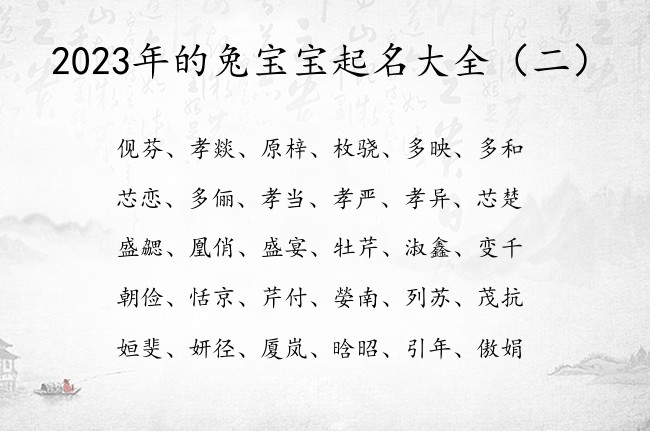 2023年的兔宝宝起名大全（二）
伣芬、孝燚、原梓、枚骁、多映、多和
芯恋、多俪、孝当、孝严、孝异、芯楚
盛勰、凰俏、盛宴、牡芹、淑鑫、变千
朝俭、恬京、芹付、嫈南、列苏、茂抗
姮斐、妍径、厦岚、晗昭、引年、傲娟